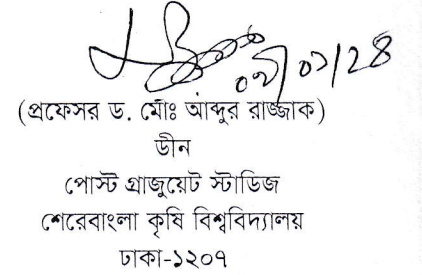 (প্রফেসর ড. মোঃ আব্দুর রাজ্জাক)
ডীন
পোস্ট গ্রাজুয়েট স্টাডিজ
শেরেবাংলা কৃষি বিশ্ববিদ্যালয়
ঢাকা-১২০৭